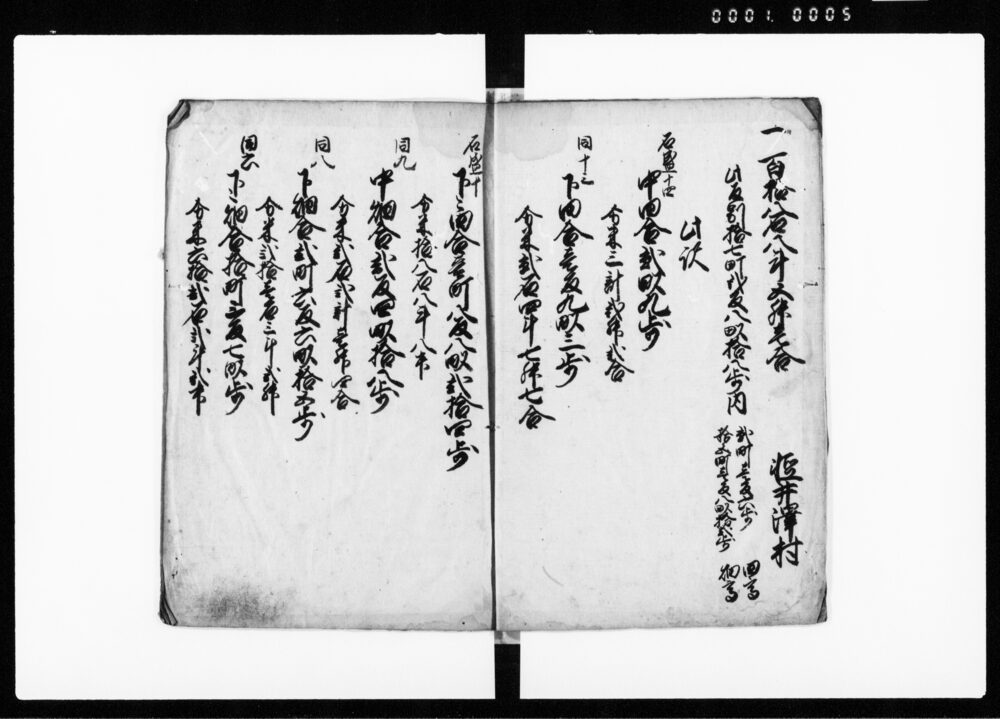 0001 0005
一 百拾八石八斗五升壱合
軽井澤村
此反別拾七町弐反八畝拾八歩内
弐町壱反六歩 田高
拾五町壱反八畝拾弐歩 畑高
此訳
石盛十四
中田合弐畝九歩
分米三斗弐升弐合
同十三
下田合壱反九畝三歩
分米弐石四斗七升七合
石盛十
下々田合壱町八反八畝弐拾四歩
分米拾八石八斗八升
同九
中畑合弐反四畝拾八歩
分米弐石弐斗壱升四合
同八
下畑合弐町六反六畝拾五歩
分米弐拾壱石三斗弐升
同六
下々畑合拾町三反七畝歩
分米六拾弐石弐斗弐升